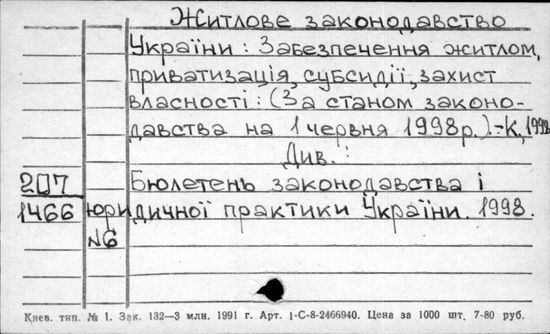 Житлове законодавство
України : Забезпечення житлом,
приватизація, субсидії, захист
власності : (За станом законо-
давства на 1 червня 1998р.).-К, 1998.
Див. :
207 Бюлетень законодавства і
1466 юридичної практики України. 1998.
№6
Киев. тип. № 1. Зак. 132—3 млн. 1991 г. Арт. 1-С-8-2466940. Цена за 1000 шт. 7-80 руб.